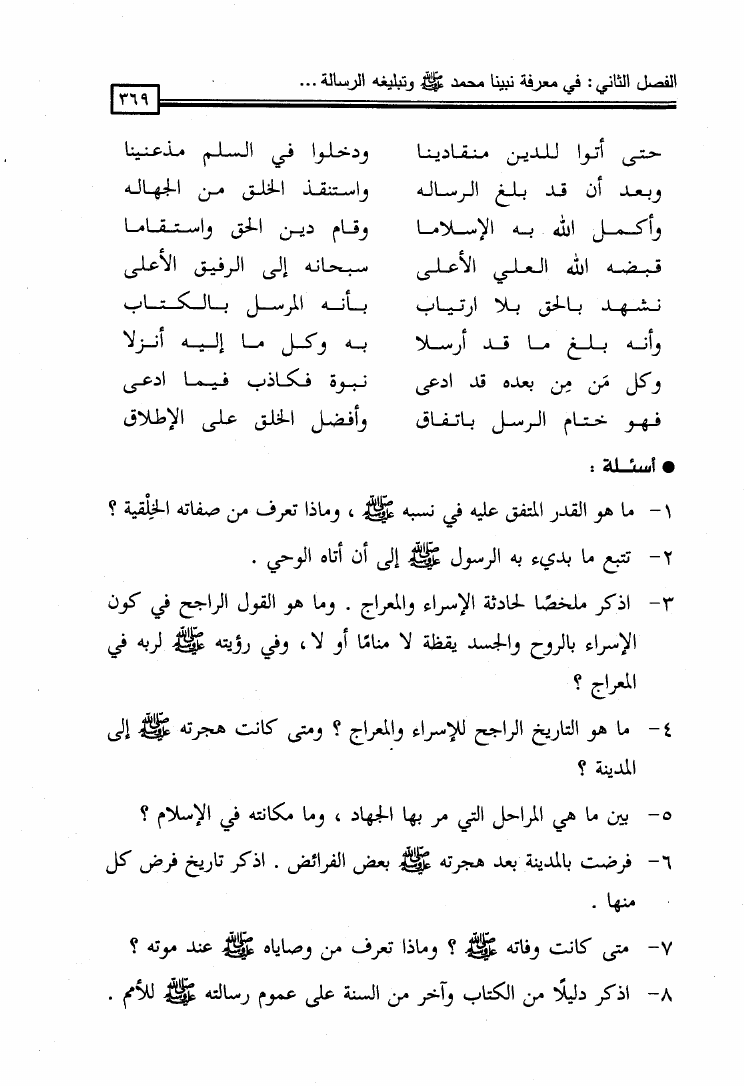 الفصل الثاني : في معرفة نبينا محمد ﷺ وتبليغه الرسالة ...
٣٦٩
حتى أتوا للدين منقادينا ودخلوا في السلم مذعنينا
وبعد أن قد بلغ الرساله واستنقذ الخلق من الجهاله
وأكمل الله به الإسلاما وقام دين الحق واستقاما
قبضه الله العلي الأعلى سبحانه إلى الرفيق الأعلى
نشهد بالحق بلا ارتياب بأنه المرسل بالكتاب
وأنه بلغ ما قد أرسلا به وكل ما إليه أنزلا
وكل مَن مِن بعده قد ادعى نبوة فكاذب فيما ادعى
فهو ختام الرسل باتفاق وأفضل الخلق على الإطلاق
● أسئلة :
١- ما هو القدر المتفق عليه في نسبه ﷺ ، وماذا تعرف من صفاته الخِلْقية ؟
٢- تتبع ما بديء به الرسول ﷺ إلى أن أتاه الوحي .
٣- اذكر ملخصًا لحادثة الإسراء والمعراج . وما هو القول الراجح في كون
الإسراء بالروح والجسد يقظة لا منامًا أو لا ، وفي رؤيته ﷺ لربه في
المعراج ؟
٤- ما هو التاريخ الراجح للإسراء والمعراج ؟ ومتى كانت هجرته ﷺ إلى
المدينة ؟
٥- بين ما هي المراحل التي مر بها الجهاد ، وما مكانته في الإسلام ؟
٦- فرضت بالمدينة بعد هجرته ﷺ بعض الفرائض . اذكر تاريخ فرض كل
منها .
٧- متى كانت وفاته ﷺ ؟ وماذا تعرف من وصاياه ﷺ عند موته ؟
٨- اذكر دليلًا من الكتاب وآخر من السنة على عموم رسالته ﷺ للأمم .